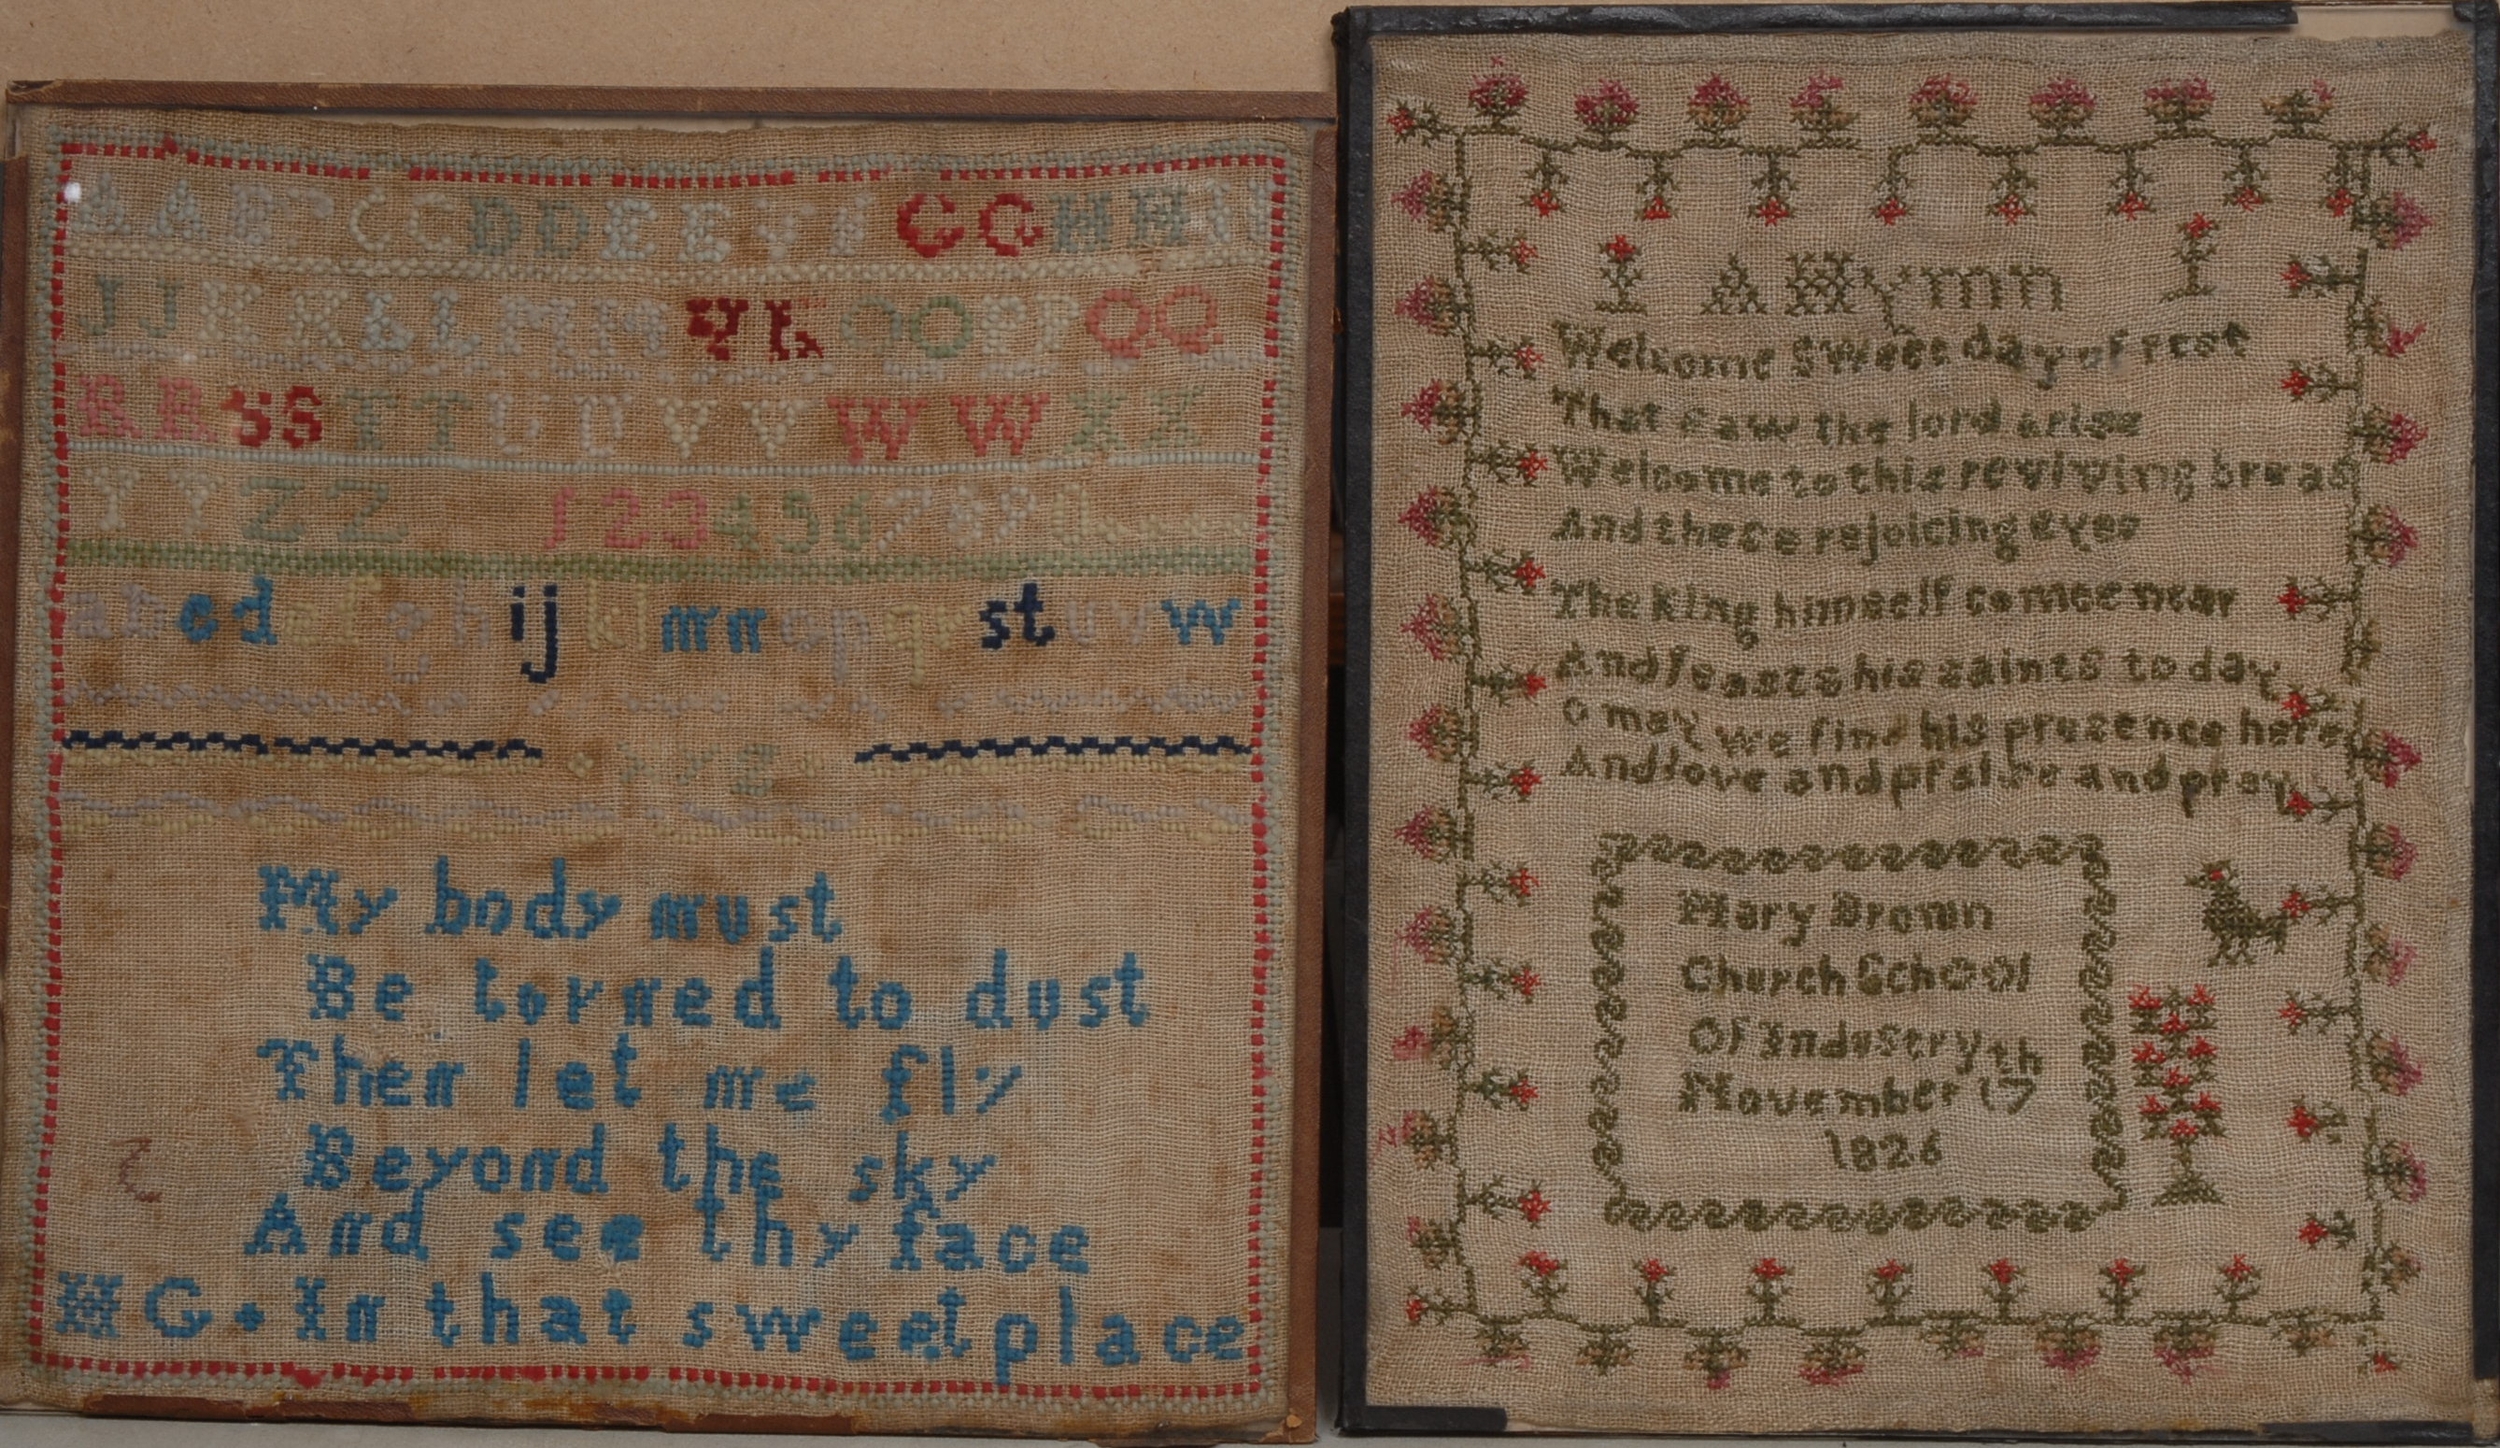 A A B C C D D E E F F G G H H I I
J J K K L L M M N N O O P P Q Q
R R S S T T U U V V W W X X
Y Y Z Z 1 2 3 4 5 6 7 8 9 0
a b c d e f g h i j k l m n o p q r s t u v w
x y z
My body must
Be torned to dust
Then let me fly
Beyond the sky
And see thy face
H G In that sweet place
A Hymn
Welcome sweet day of rest
That saw the lord arise
Welcome to this reviving breas
And these rejoicing eyes
The king himself comee near
And feasts his saints to day
O may we find his presence here
And love and praise and pray
Mary Brown
Church School
Of Industry th
November 17
1826